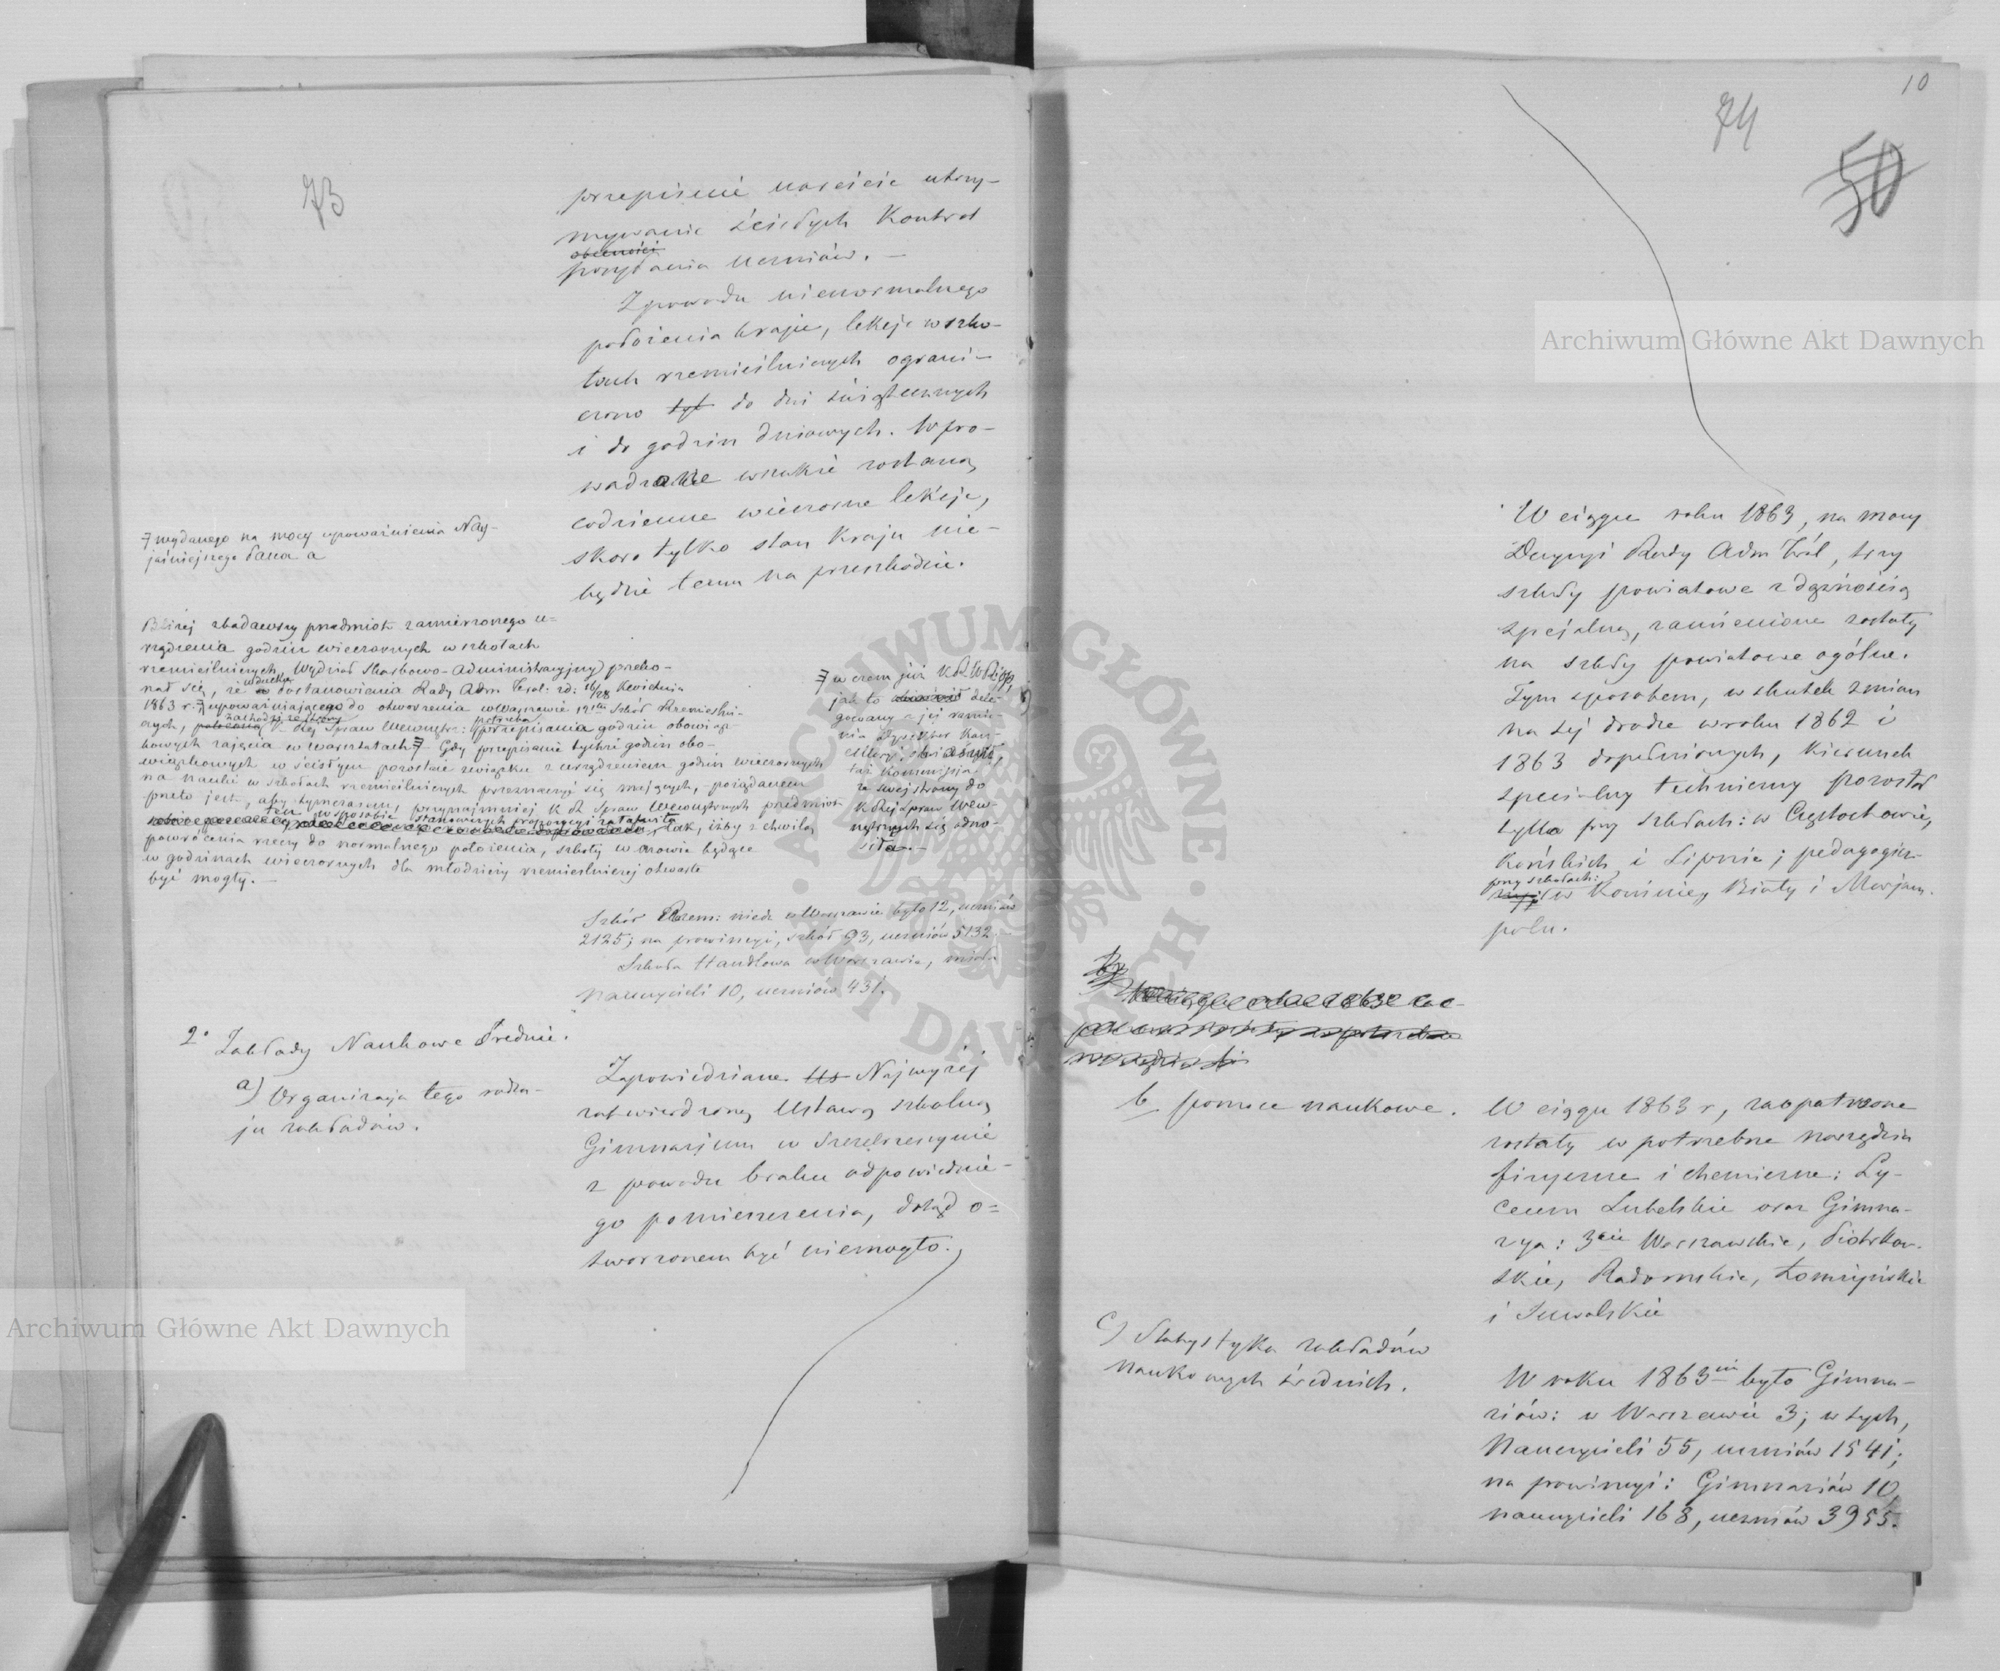 73
przepisane nareście utrzy-
mywanie ścisłych Kontrol
obecności
przybycia uczniów. —
Z powodu nienormalnego
położenia kraju, lekcje w szko-
łach rzemieślniczych ograni-
czono był do dni świątecznych
i do godzin dniowych. Wpro-
wadzone wszakże zostaną
codzienne wieczorne lekcje,
skoro tylko stan Kraju nie-
będzie temu na przeszkodzie.
wydanego na mocy upoważnienia Naj-
jaśniejszego Pana a
Bliżej zbadawszy przedmiot zamierzonego u-
rządzenia godzin wieczornych w szkołach
rzemieślniczych, Wydział Skarbowo-Administracyjny przeko-
nał się, że w skutku postanowienia Rady Adm. Król: zd: 16/28 Kwietnia
1863 r. upoważniającego do otworzenia w Warszawie 12stu Szkół Rzemieślni-
czych, zachodzi ze strony K. Rej Spraw Wewnętr: potrzeba przepisania godzin obowiąz-
kowych zajęcia w warsztatach. Gdy przepisanie tychże godzin obo-
wiązkowych w ścisłym pozostaje związku z urządzeniem godzin wieczornych
na nauki w szkołach rzemieślniczych przeznaczyć się mających, pożądanem
przeto jest, aby tymczasem, przynajmniej K. R. Spraw Wewnętrznych przedmiot
ten w sposobie stanowczych propozycyi załatwiła, tak, iżby z chwilą
powrócenia rzeczy do normalnego położenia, szkoły w mowie będące
w godzinach wieczornych dla młodzieży rzemieślniczej otwarte
być mogły. —
w czem już K.R.W.R.i O.P.
jak to dele-
gowany z jej ramie-
nia Dyrektor Kan-
cellaryi oświadczył,
taż Kommissja
ze swej strony do
K. Rej Spraw Wew-
nętrznych się odno-
siła. —
Szkół Rzem: niedz. w Warszawie było 12, uczniów
2125; na prowincyi, szkół 93, uczniów 5132. —
Szkoła Handlowa w Warszawie, miała
Nauczycieli 10, uczniów 431.
2° Zakłady Naukowe Średnie.
a) Organizacja tego rodza-
ju zakładów.
Zapowiedziane Us Najwyżej
zatwierdzoną Ustawą szkolną
Gimnazjum w Szczebrzeszynie
z powodu braku odpowiednie-
go pomieszczenia, dotąd o=
tworzonem być niemogło.
10
74
50
W ciągu roku 1863, na mocy
Decyzyi Rady Adm Król, trzy
szkoły powiatowe z dążnością
specjalną, zamienione zostały
na szkoły powiatowe ogólne.
Tym sposobem, w skutek zmian
na tej drodze w roku 1862 i
1863 dopełnionych, kierunek
specialny techniczny pozostał
tylko przy szkołach: w Częstochowie,
Końskich i Lipnie; pedagogicz-
przy szkołach:
w Koninie, Biały i Marjam-
polu.
b. pomoce naukowe.
W ciągu 1863 r, zaopatrzone
zostały w potrzebne narzędzia
fizyczne i chemiczne: Ly-
ceum Lubelskie oraz Gimna-
zya: 3cie Warszawskie, Piotrkow-
skie, Radomskie, Łomżyńskie
i Suwalskie
c) Statystyka zakładów
Naukowych średnich.
W roku 1863im było Gimna-
ziów: w Warszawie 3; w tych,
Nauczycieli 55, uczniów 1541;
na prowincyi: Gimnaziów 10,
nauczycieli 168, uczniów 3955.
Archiwum Główne Akt Dawnych
Archiwum Główne Akt Dawnych
ARCHIWUM GŁÓWNE · AKT DAWNYCH ·